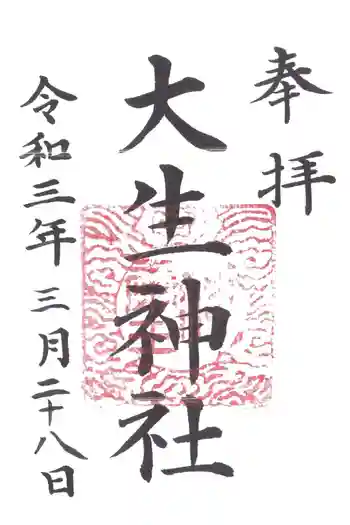 奉拝
大生神社
令和三年三月二十八日